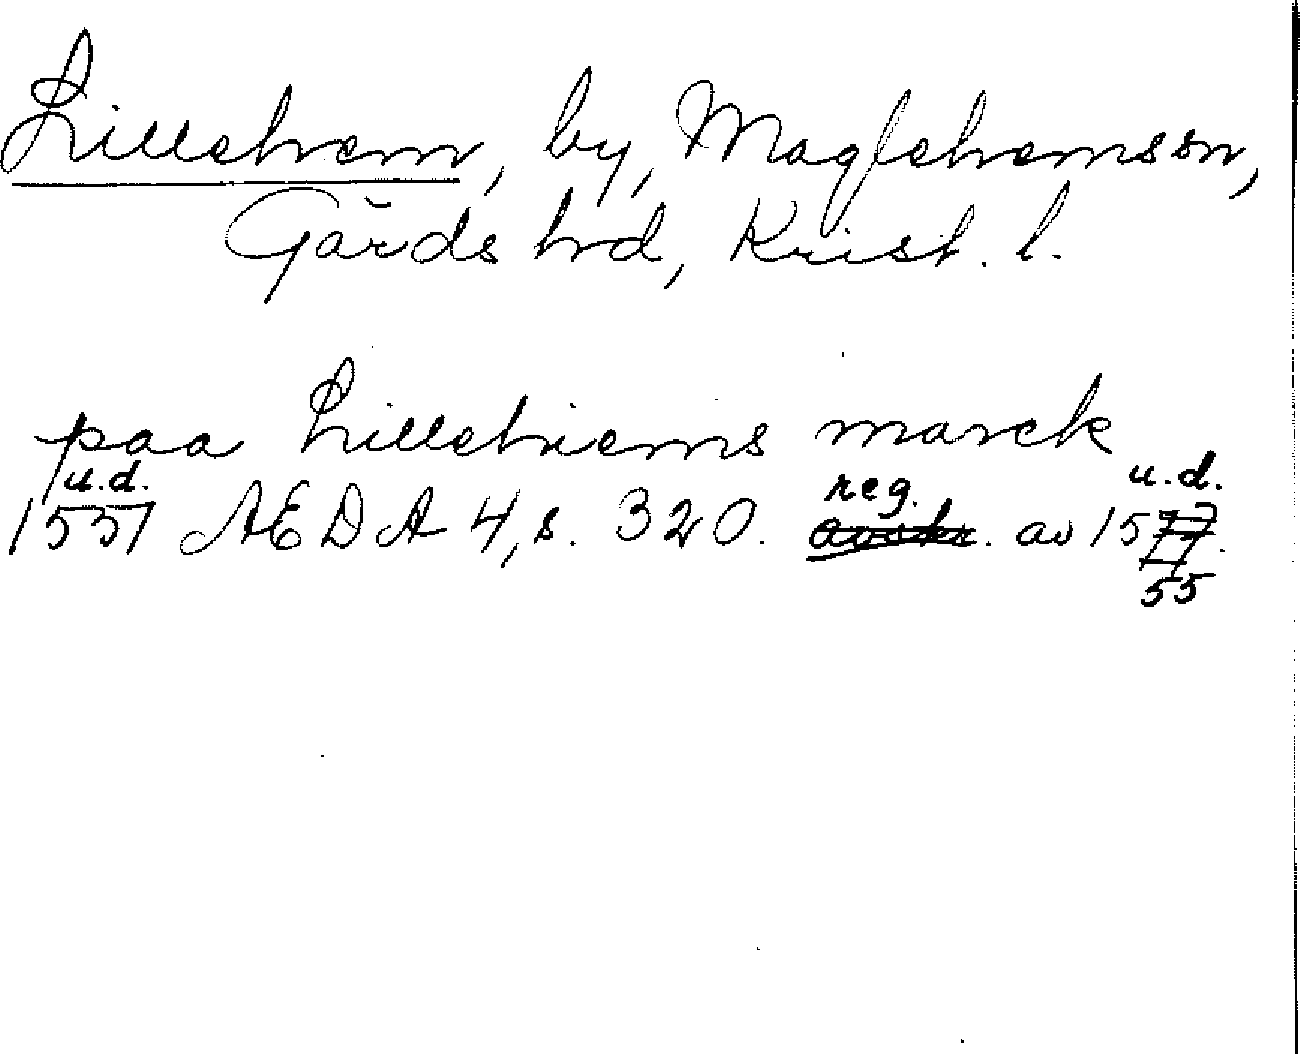 Lillehem, by, Maglehems sn,
Gärds hd, Krist. l.
paa Lillehiems marck
u.d. reg. u.d.
1551 AEDA 4, s. 320. avskr. av 1577.
55